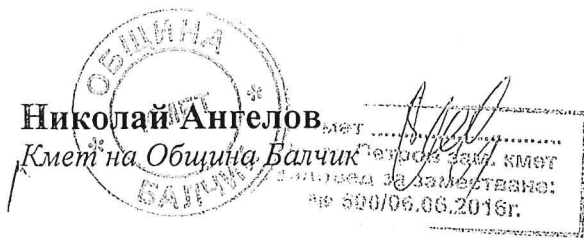 ОБЩИНА
КМЕТ
БАЛЧИК
Николай Ангелов
Кмет на Община Балчик
Кмет
Петров зам. кмет
заповед за заместване:
№ 590/06.06.2016г.